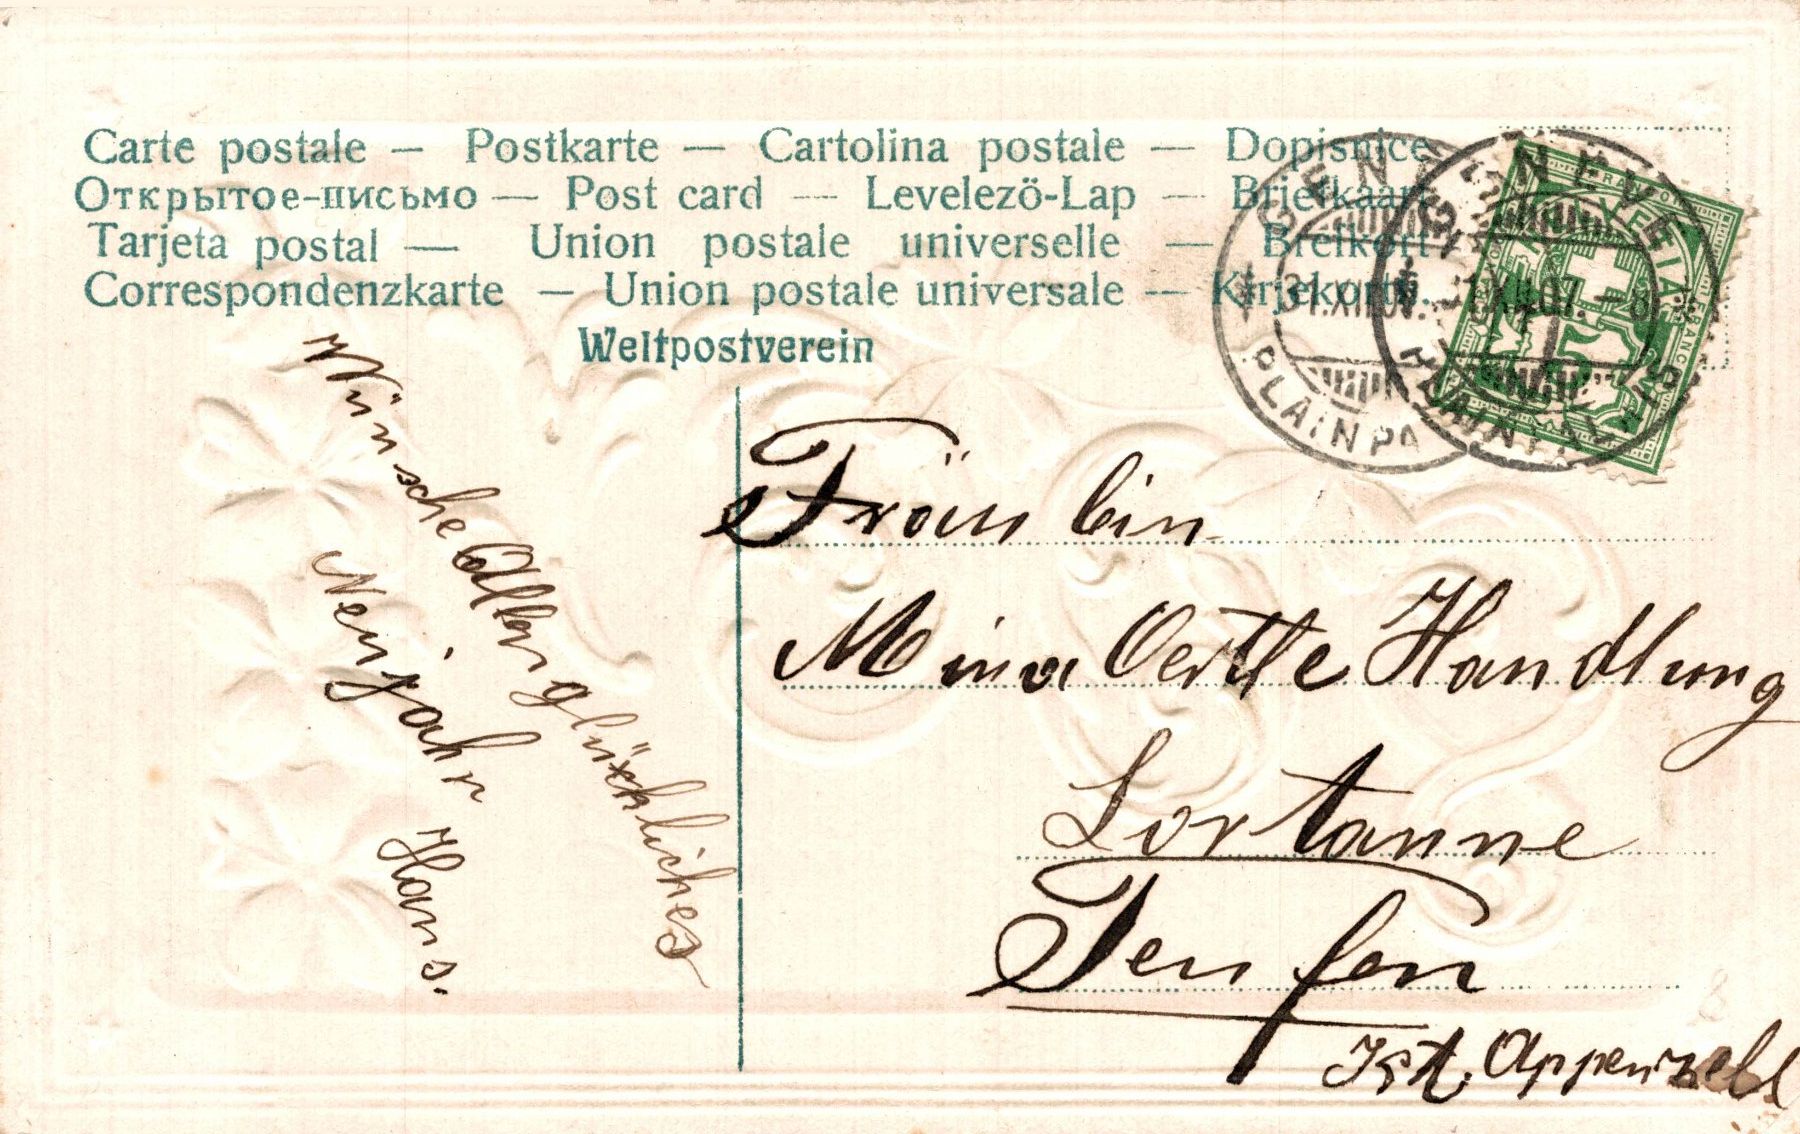 Carte postale — Postkarte — Cartolina postale — Dopisnice
Открытое-письмо — Post card — Levelezö-Lap — Briefkaart
Tarjeta postal — Union postale universelle — Brefkort
Correspondenzkarte — Union postale universale — Kirjekortti.
Weltpostverein
GENÈVE
31.XII.07.
PLAINPA
GENÈVE
31.XII.07. — 8
PLAINPALAIS
HELVETIA
Wünsche Allen glückliches
Neujahr Hans.
Fräulein
Mina Oertle Handlung
Lortanne
Teufen
Kt. Appenzell